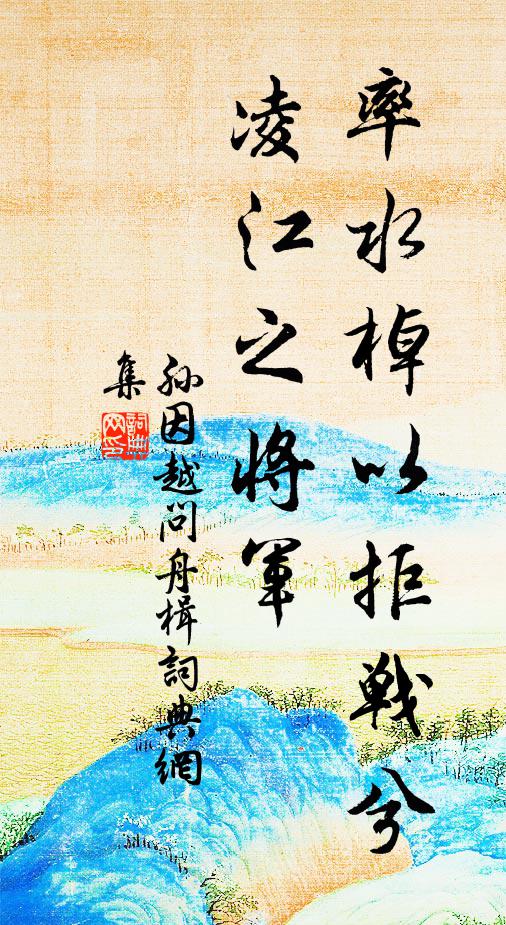 率水棹以拒戰兮
凌江之將軍
孫因越問舟楫詞典網
集
詞典
网印